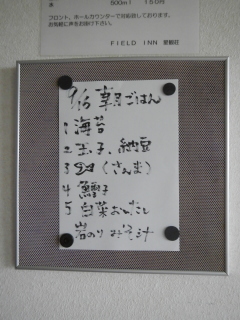 水 500ml 150円
フロント、ホールカウンターで対応致しております。
お気軽に声をお掛け下さい。
FIELD INN
朝ごはん
1 海苔
2 玉子、納豆
3 (さんま)
4 鱈子
5 白菜おしたし
岩のり みそ汁